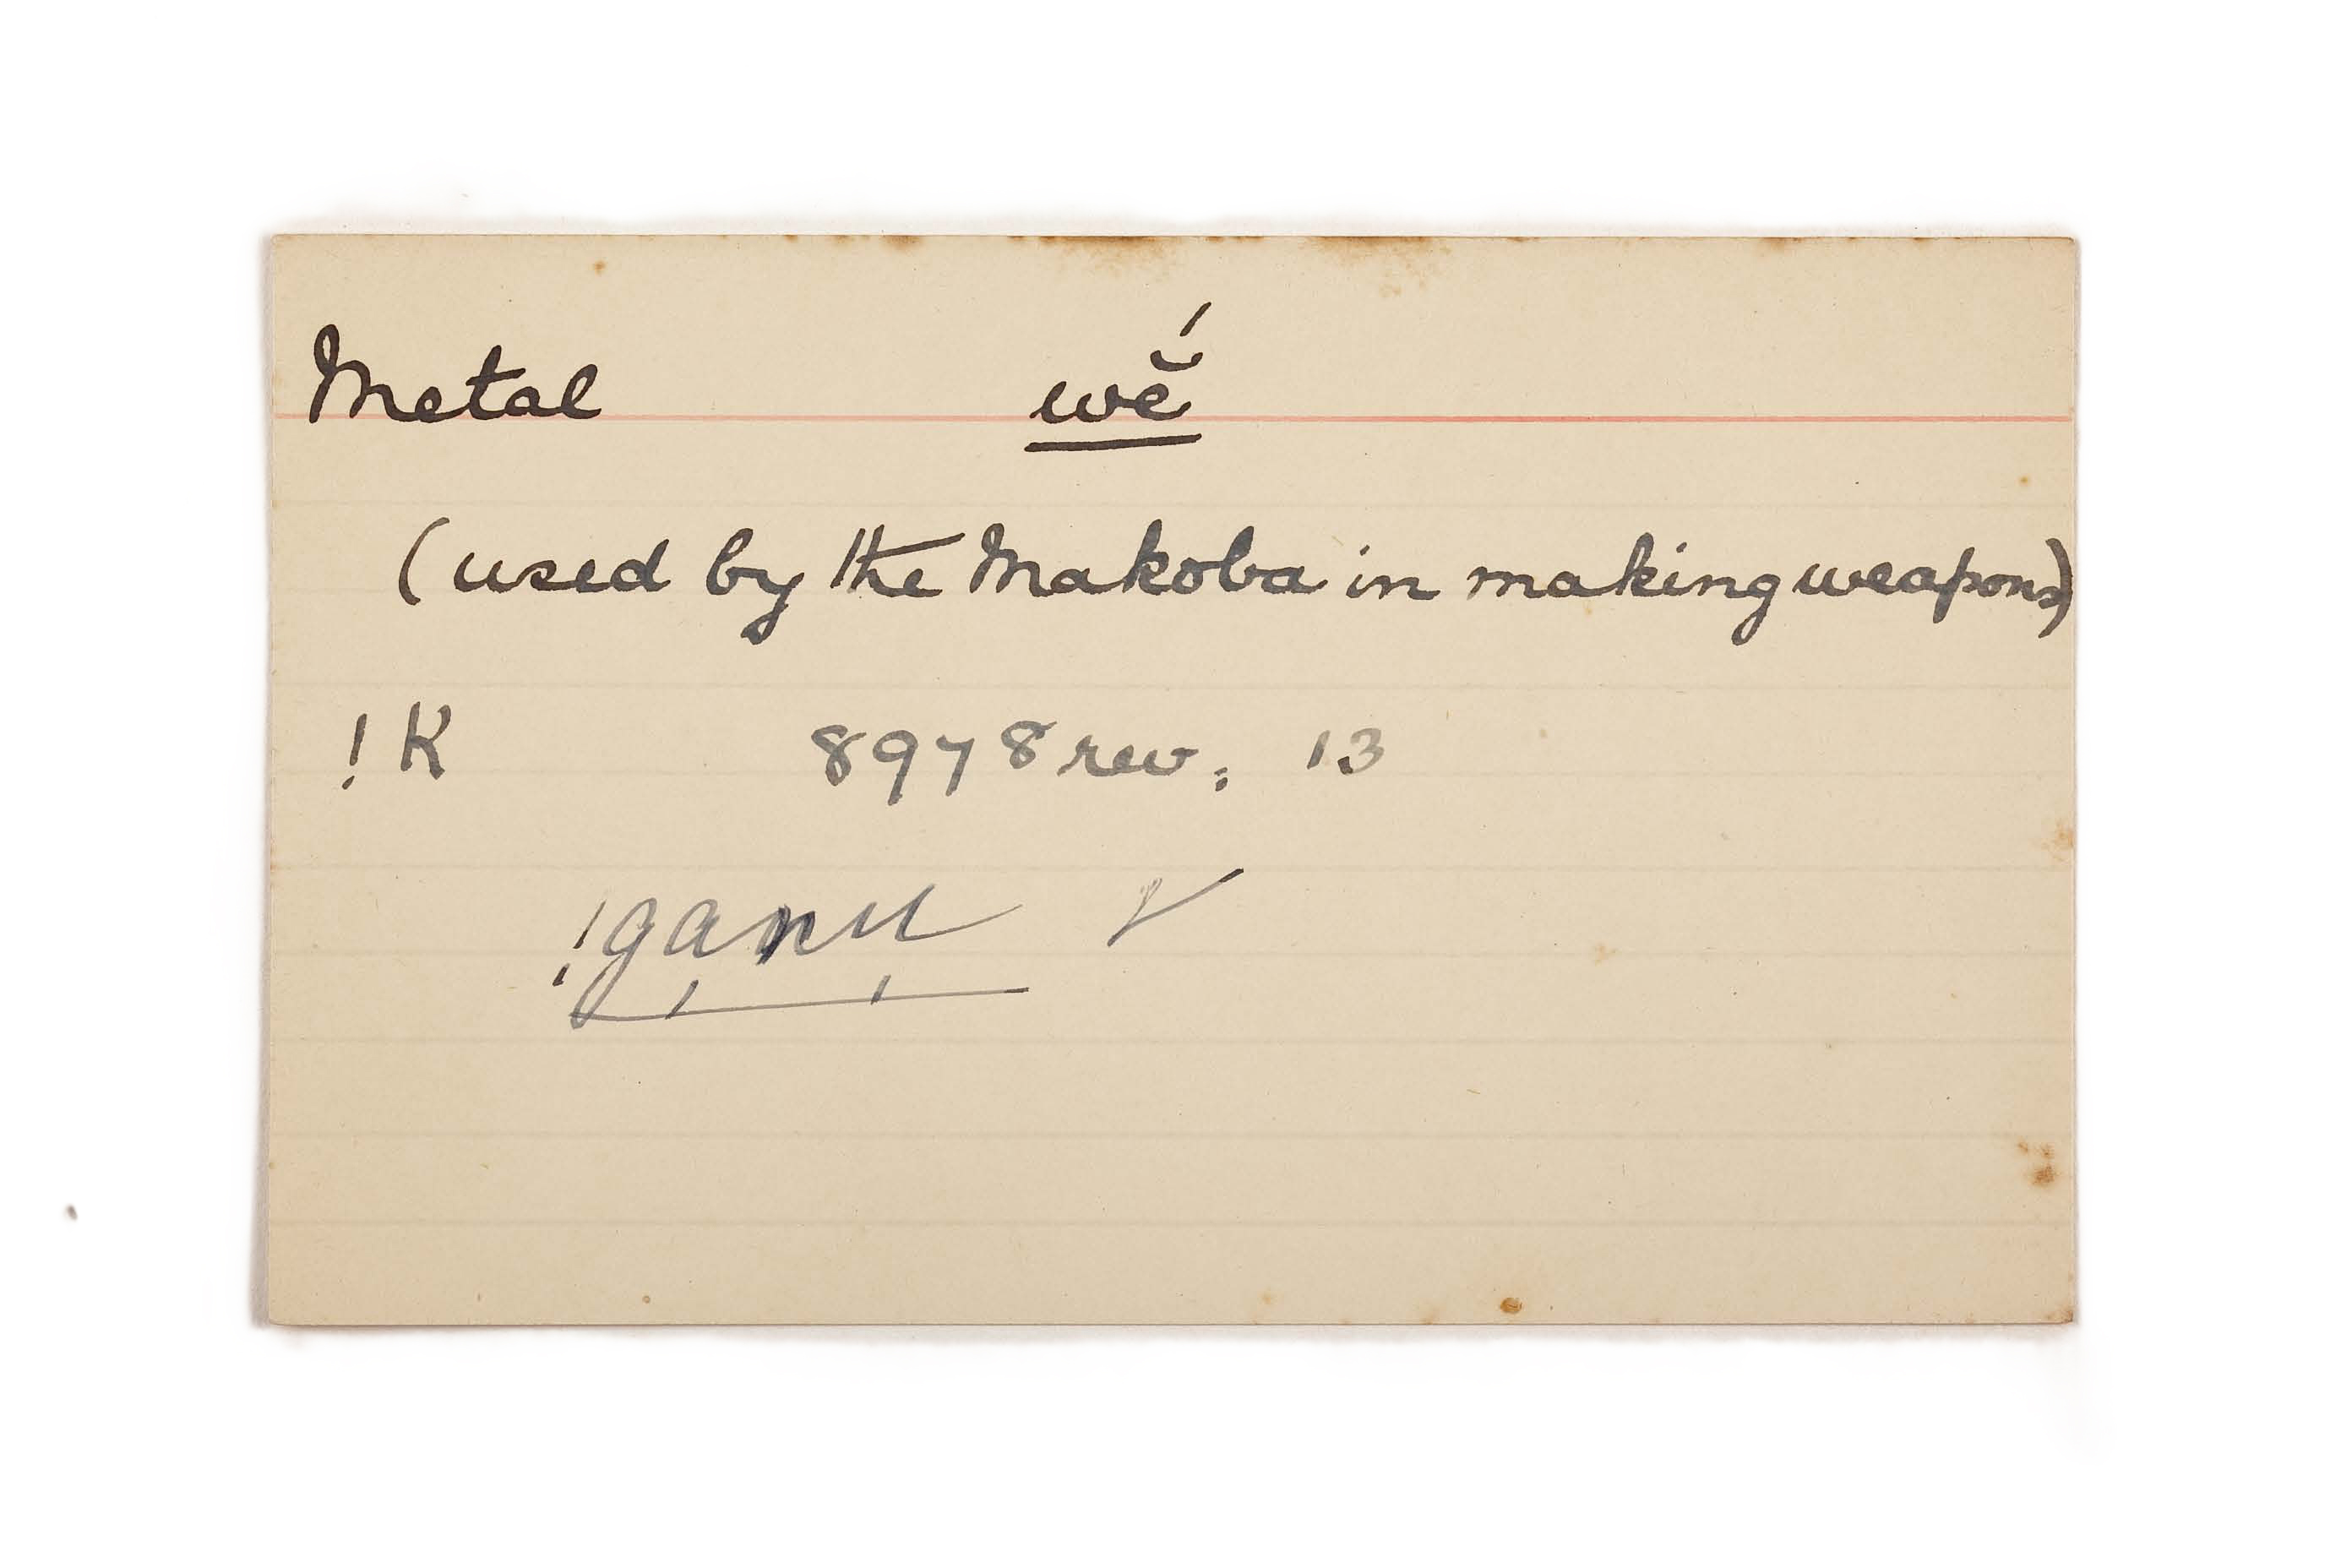 Metal wĕ́
(used by the Makoba in making weapons)
!K 8978 rev: 13
!ganu ✓